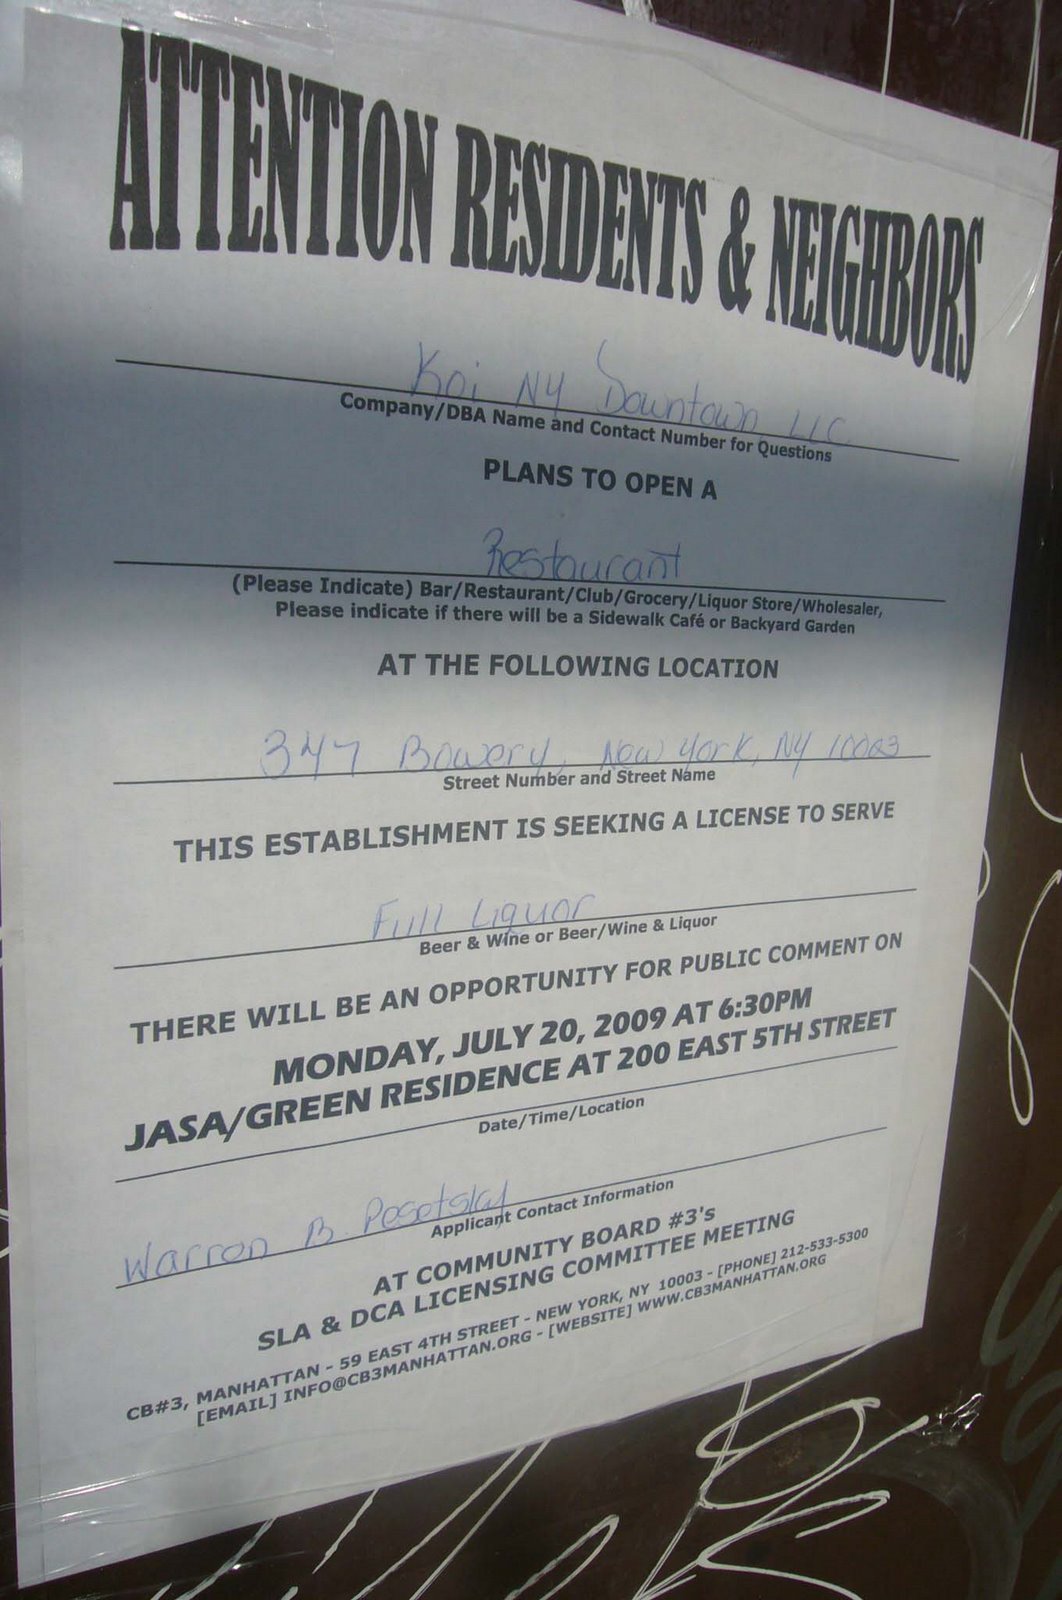 ATTENTION RESIDENTS & NEIGHBORS
Koi NY Downtown LLC
Company/DBA Name and Contact Number for Questions
PLANS TO OPEN A
Restaurant
(Please Indicate) Bar/Restaurant/Club/Grocery/Liquor Store/Wholesaler,
Please indicate if there will be a Sidewalk Café or Backyard Garden
AT THE FOLLOWING LOCATION
347 Bowery, New York, NY 10003
Street Number and Street Name
THIS ESTABLISHMENT IS SEEKING A LICENSE TO SERVE
Full Liquor
Beer & Wine or Beer/Wine & Liquor
THERE WILL BE AN OPPORTUNITY FOR PUBLIC COMMENT ON
MONDAY, JULY 20, 2009 AT 6:30PM
JASA/GREEN RESIDENCE AT 200 EAST 5TH STREET
Date/Time/Location
Warren B. Pesetsky
Applicant Contact Information
AT COMMUNITY BOARD #3's
SLA & DCA LICENSING COMMITTEE MEETING
CB#3, MANHATTAN - 59 EAST 4TH STREET - NEW YORK, NY 10003 - [PHONE] 212-533-5300
[EMAIL] INFO@CB3MANHATTAN.ORG - [WEBSITE] WWW.CB3MANHATTAN.ORG